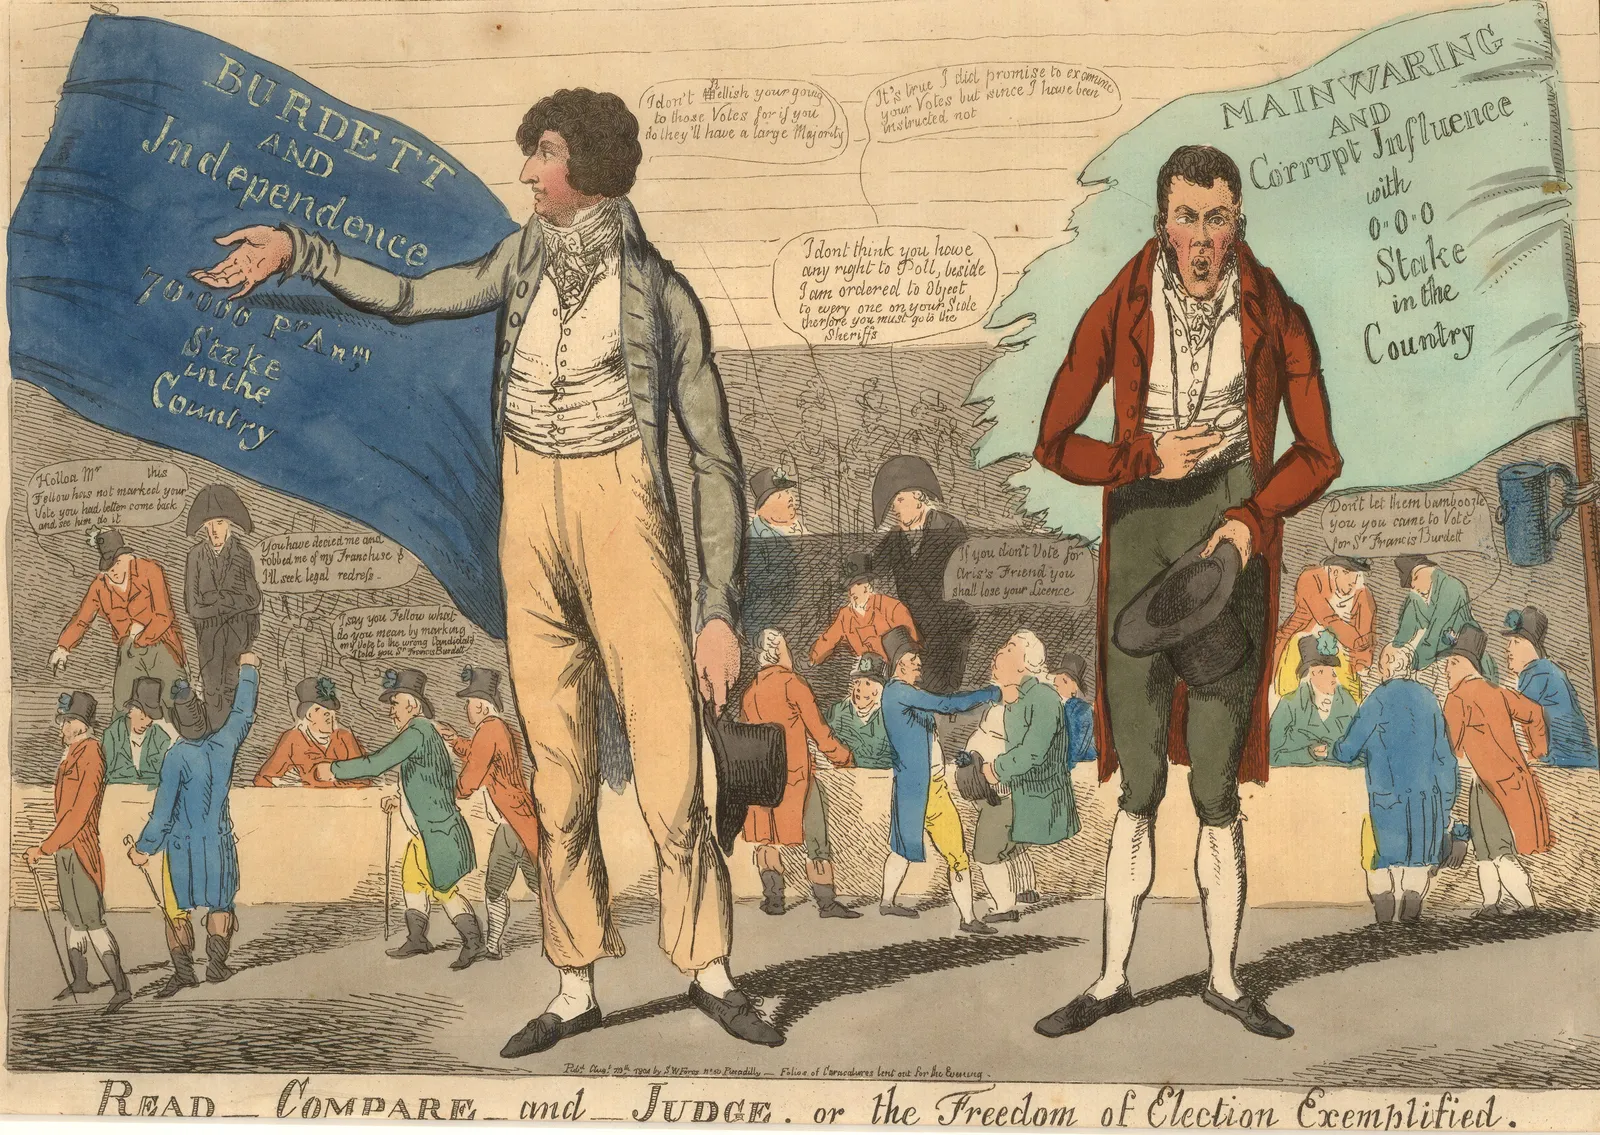 BURDETT
AND
Independence
70.000 pr Anm,
Stake
in the
Country
I don't Mellish your going
to those Votes for if you
do they'll have a large Majority
It's true I did promise to examine
your Votes but since I have been
instructed not
I dont think you have
any right to Poll, beside
I am ordered to Object
to every one on your Side
therfore you must go to the
Sheriffs
MAINWARING
AND
Corrupt Influence
with
0-0-0
Stake
in the
Country
Holloa Mr this
Fellow has not marked your
Vote you had better come back
and see him do it
You have decied me and
robbed me of my Franchise &
I'll seek legal redress -
I say you Fellow what
do you mean by marking
my Vote to the wrong Candidate
I told you Sr Francis Burdett
If you don't Vote for
Aris's Friend you
shall lose your Licence
Don't let them bamboozle
you you came to Vote
for Sr Francis Burdett
Pubd Augt 1804 by S W Fores No 50 Piccadilly — Folios of Caracatures lent out for the Evening.
READ — COMPARE — and — JUDGE. or the Freedom of Election Exemplified.